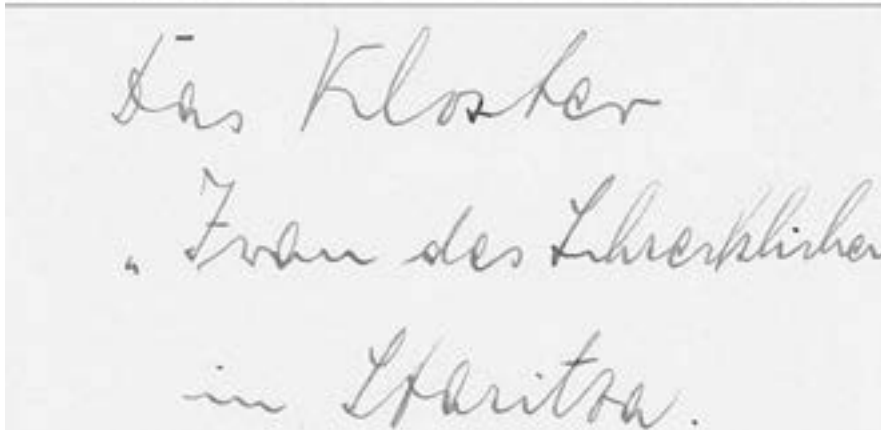 Das Kloster
„Ivan des Schrecklichen
in Staritza.